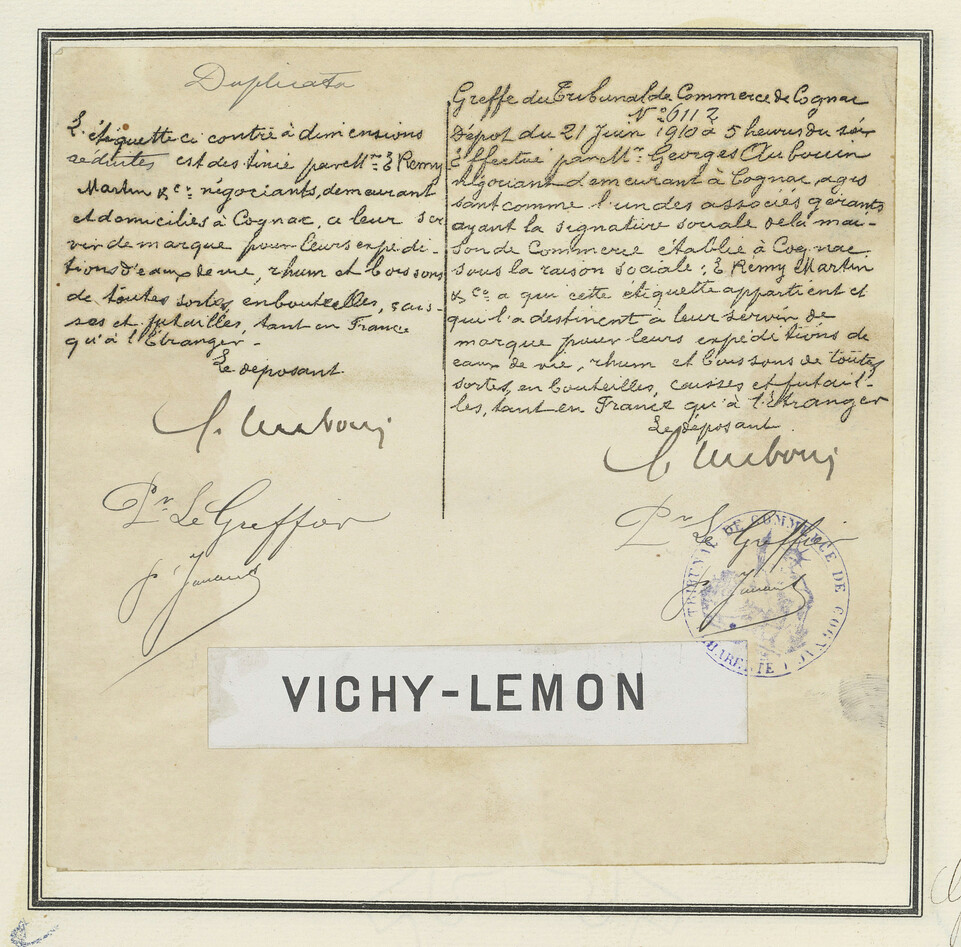 Duplicata
L'étiquette ci contre à dimensions
réduites, est destinée par Mrs E Remy
Martin & Co négociants, demeurant
et domiciliés à Cognac, a leur ser
vir de marque pour leurs expédi-
tions d'eaux de vie, rhum et boissons
de toutes sortes, en bouteilles, cais-
ses et futailles, tant en France
qu'à l'Etranger-
Le déposant.
Pr Le Greffier
Greffe du Tribunal de Commerce de Cognac
No 6112
Dépot du 21 Juin 1910 à 5 heures du soir
Effectué par Mr Georges Aubouin
négociant demeurant à Cognac, agis
sant comme l'un des associés gérants
ayant la signature sociale de la mai-
son de Commerce établie à Cognac
sous la raison sociale: E Rémy Martin
& Co a qui cette étiquette appartient et
qui l'a destinent à leur servir de
marque pour leurs expéditions de
eaux de vie, rhum et boissons de toutes
sortes, en bouteilles, caisses et futail-
les, tant en France qu'à l'étranger
Le déposant
Pr Le Greffier
TRIBUNAL DE COMMERCE DE COGNAC
CHARENTE
VICHY-LEMON